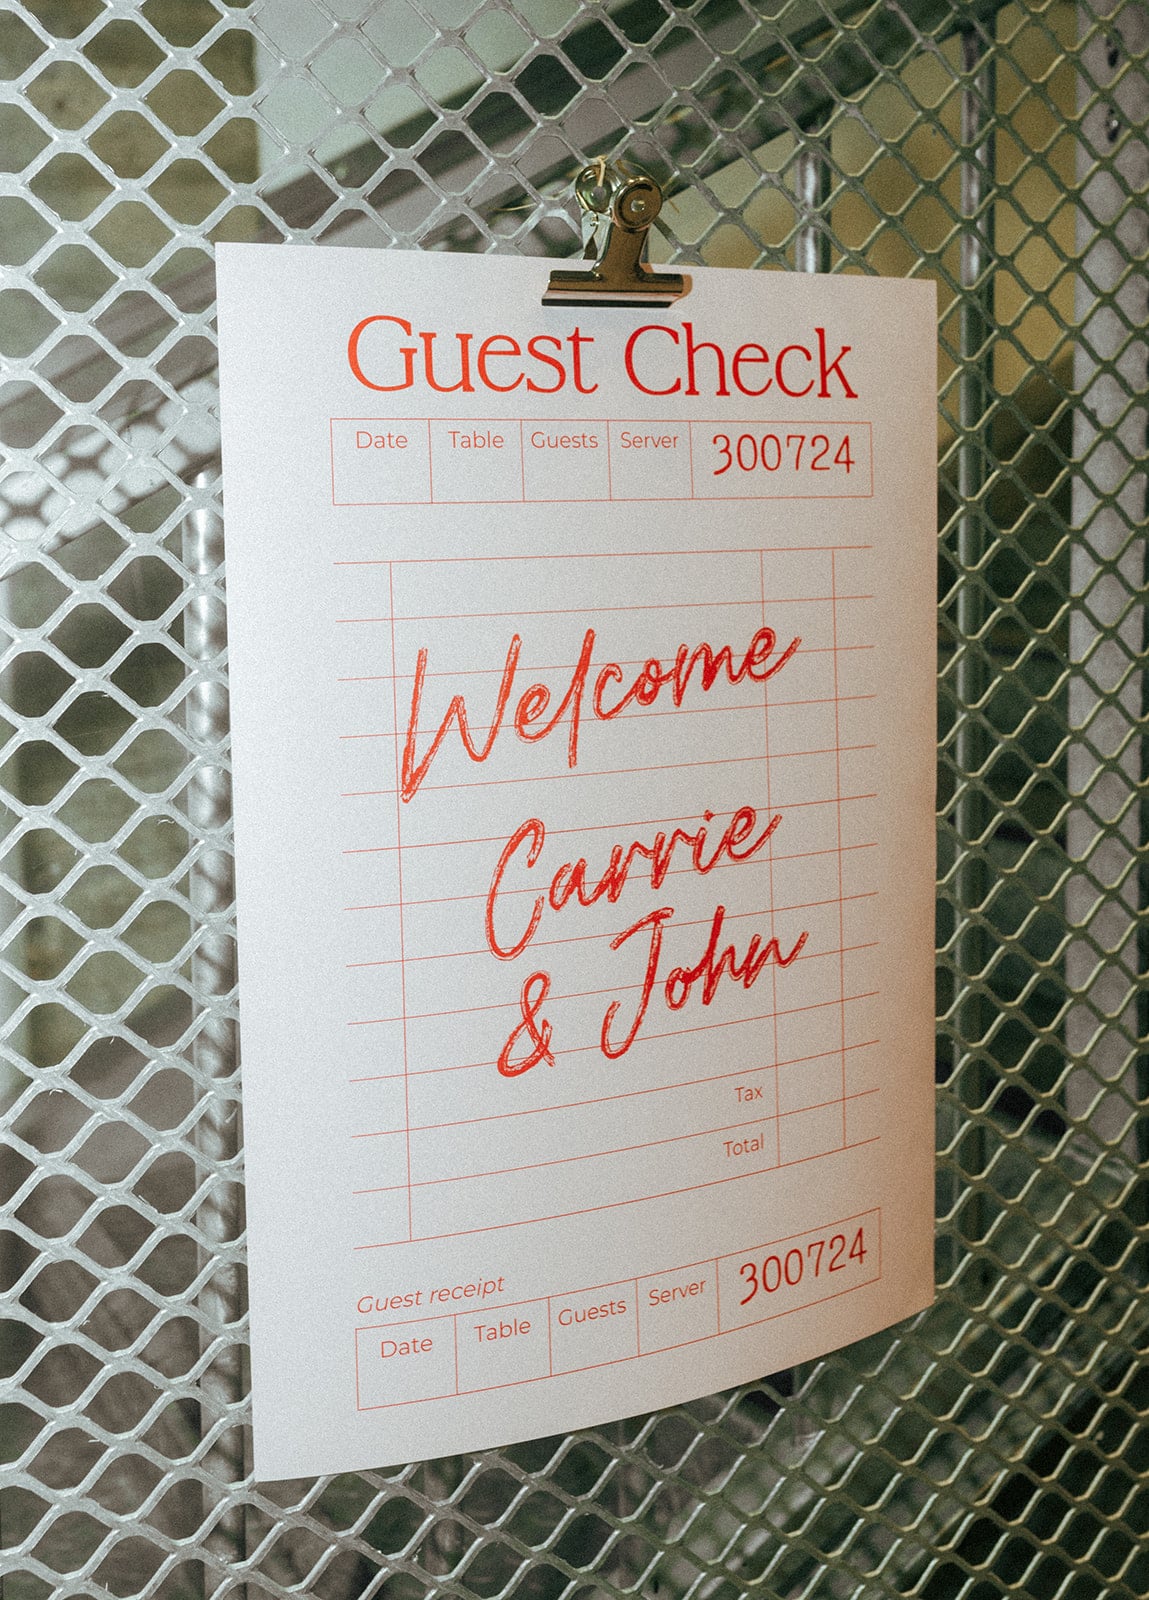 Guest Check
Date Table Guests Server 300724
Welcome
Carrie
& John
Tax
Total
Guest receipt
Date Table Guests Server 300724